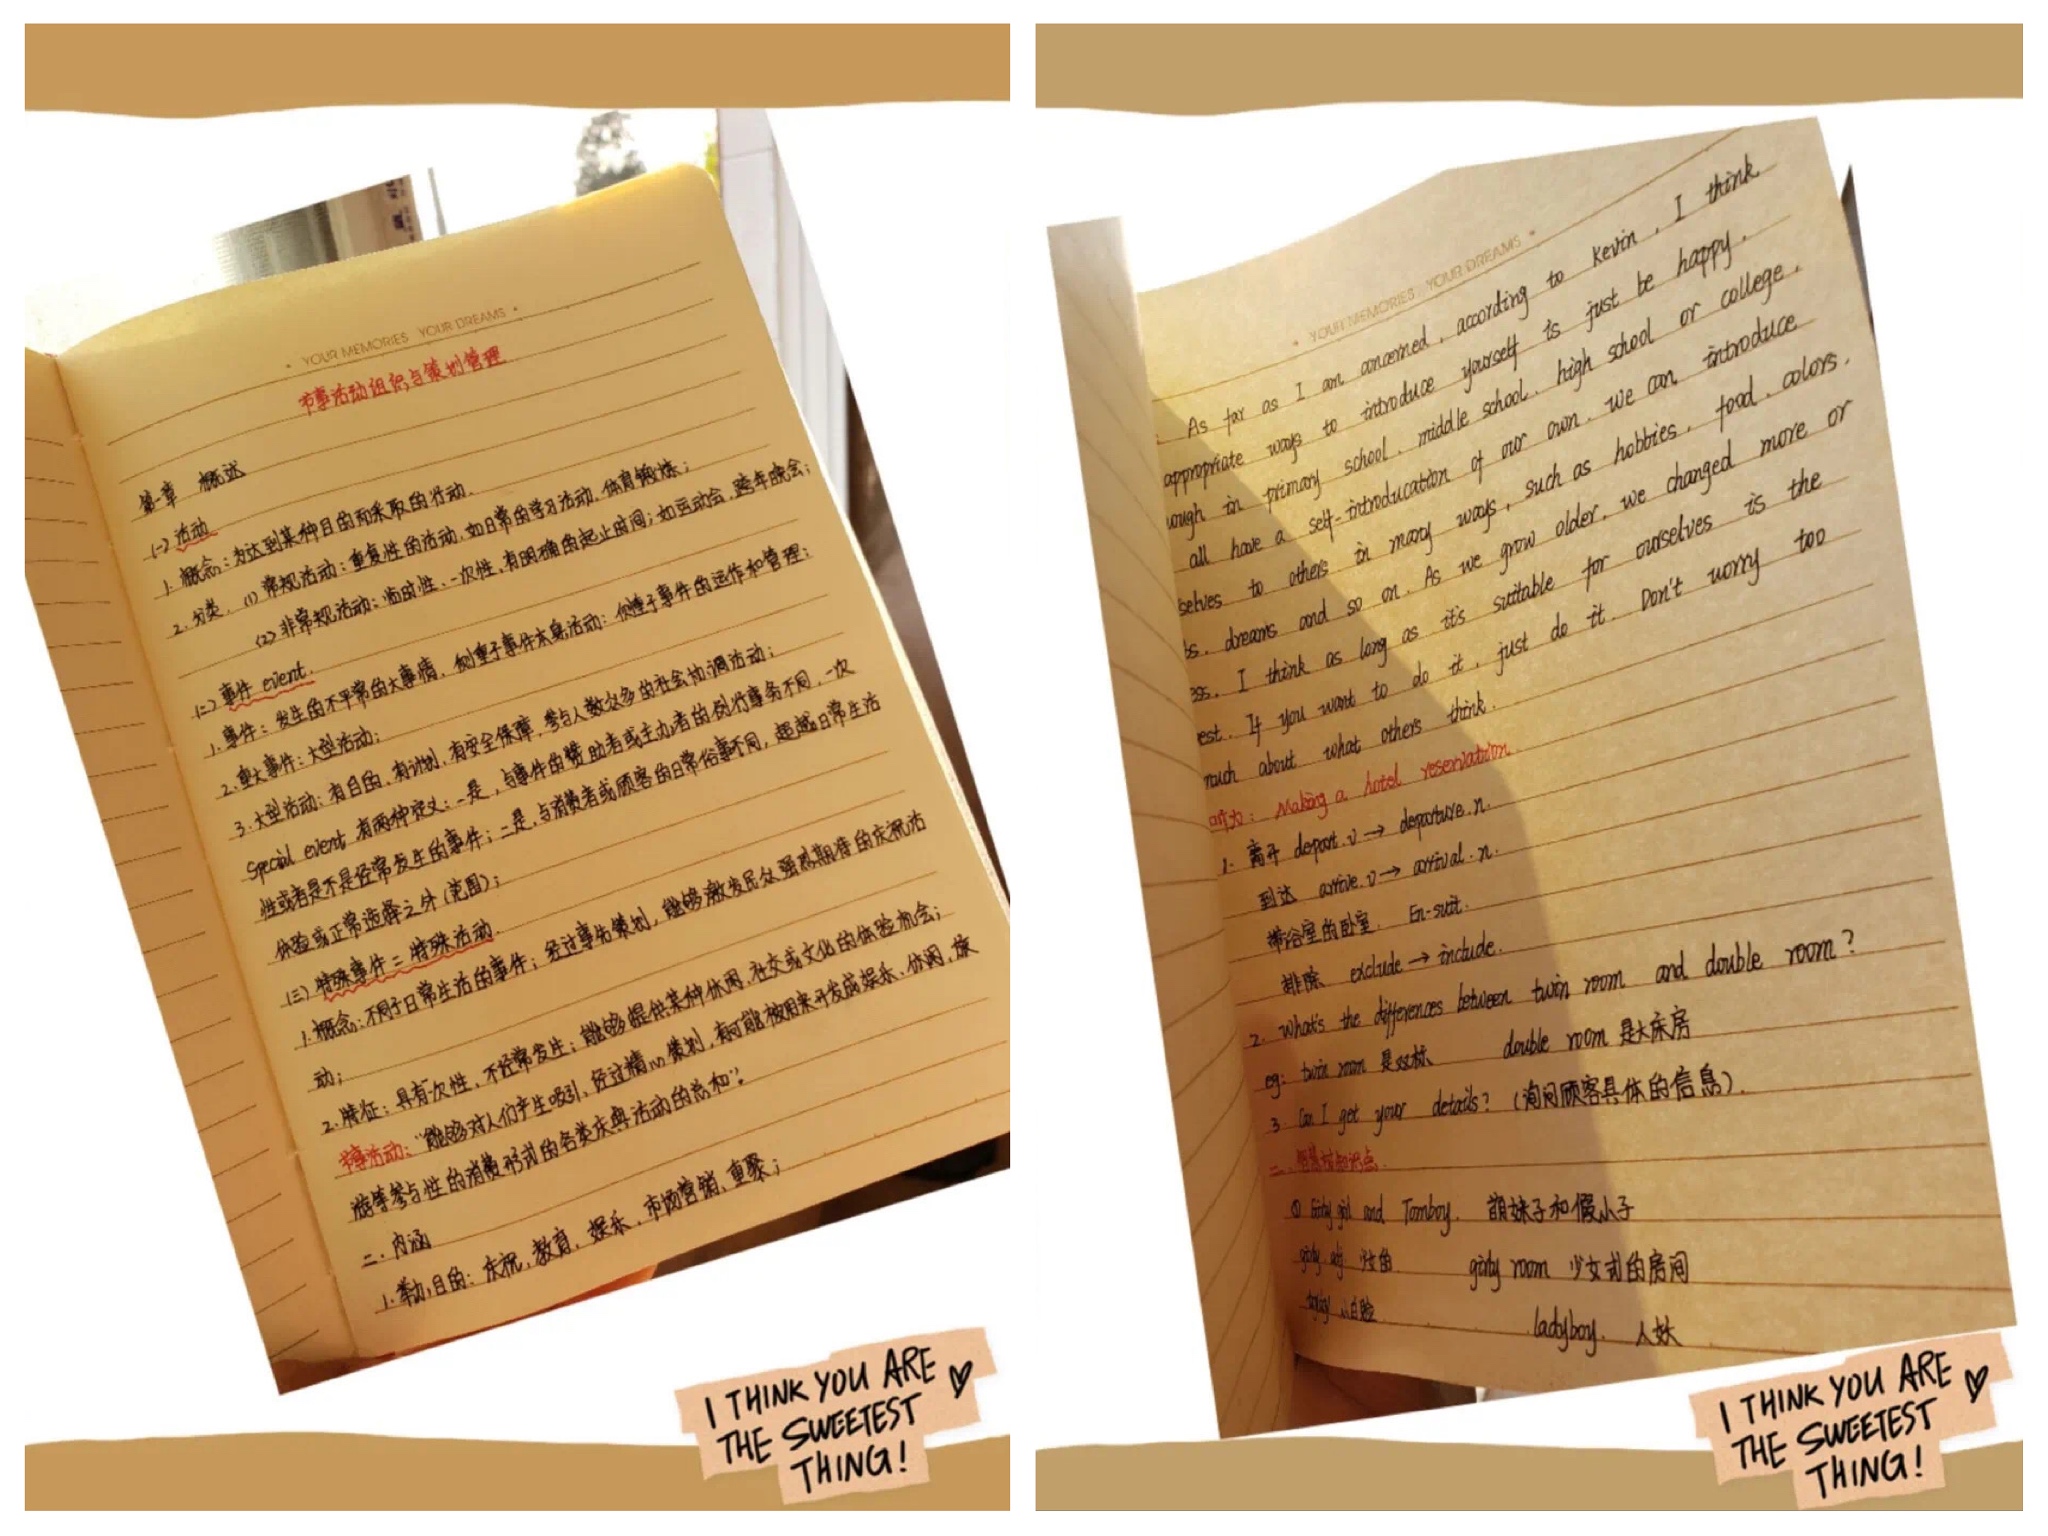 YOUR MEMORIES YOUR DREAMS
节事活动组织与策划管理
第一章 概述
(一) 活动
1. 概念：为达到某种目的而采取的行动.
2. 分类. (1) 常规活动：重复性的活动, 如日常的学习活动, 体育锻炼；
(2) 非常规活动：临时性、一次性, 有明确的起止时间；如运动会, 跨年晚会；
(二) 事件 event.
1. 事件：发生的不平常的大事情, 侧重于事件本身活动：侧重于事件的运作和管理；
2. 重大事件：大型活动；
3. 大型活动：有目的, 有计划, 有安全保障, 参与人数众多的社会协调活动；
special event 有两种定义：一是, 与事件的赞助者或主办者的例行事务不同, 一次
性或者是不是经常发生的事件；二是, 与消费者或顾客的日常俗事不同, 超越日常生活
体验或正常选择之外 (范围)；
(三) 特殊事件二特殊活动.
1. 概念：不同于日常生活的事件；经过事先策划, 能够激发民众强烈期待的庆祝活
动；
2. 特征：具有一次性, 不经常发生；能够提供某种休闲、社交或文化的体验机会；
节事活动：“能够对人们产生吸引, 经过精心策划, 有可能被用来开发成娱乐、休闲、旅
游等参与性的消费形式的各类庆典活动的总和”。
二. 内涵
1. 举办目的：庆祝, 教育, 娱乐, 市场营销, 重聚；
I THINK YOU ARE
THE SWEETEST
THING!
YOUR MEMORIES YOUR DREAMS
As far as I am concerned, according to Kevin, I think
appropriate ways to introduce yourself is just be happy.
ough in primary school, middle school, high school or college,
all have a self-introducation of our own. We can introduce
selves to others in many ways, such as hobbies, food, colors,
ts, dreams and so on. As we grow older, we changed more or
ess. I think as long as it's suitable for ourselves is the
est. If you want to do it, just do it. Don't worry too
much about what others think.
Making a hotel reservation
1. 离开 depart. v → departure. n.
到达 arrive. v → arrival. n.
带浴室的卧室. En-suit.
排除 exclude → include.
2. What's the differences between twin room and double room?
eg: twin room 是双标 double room 是大床房
3. Can I get your details? (询问顾客具体的信息).
二.
① Girly girl and Tomboy. 萌妹子和假小子
girly adj 少女的 girly room 少女式的房间
ladyboy. 人妖
I THINK YOU ARE
THE SWEETEST
THING!